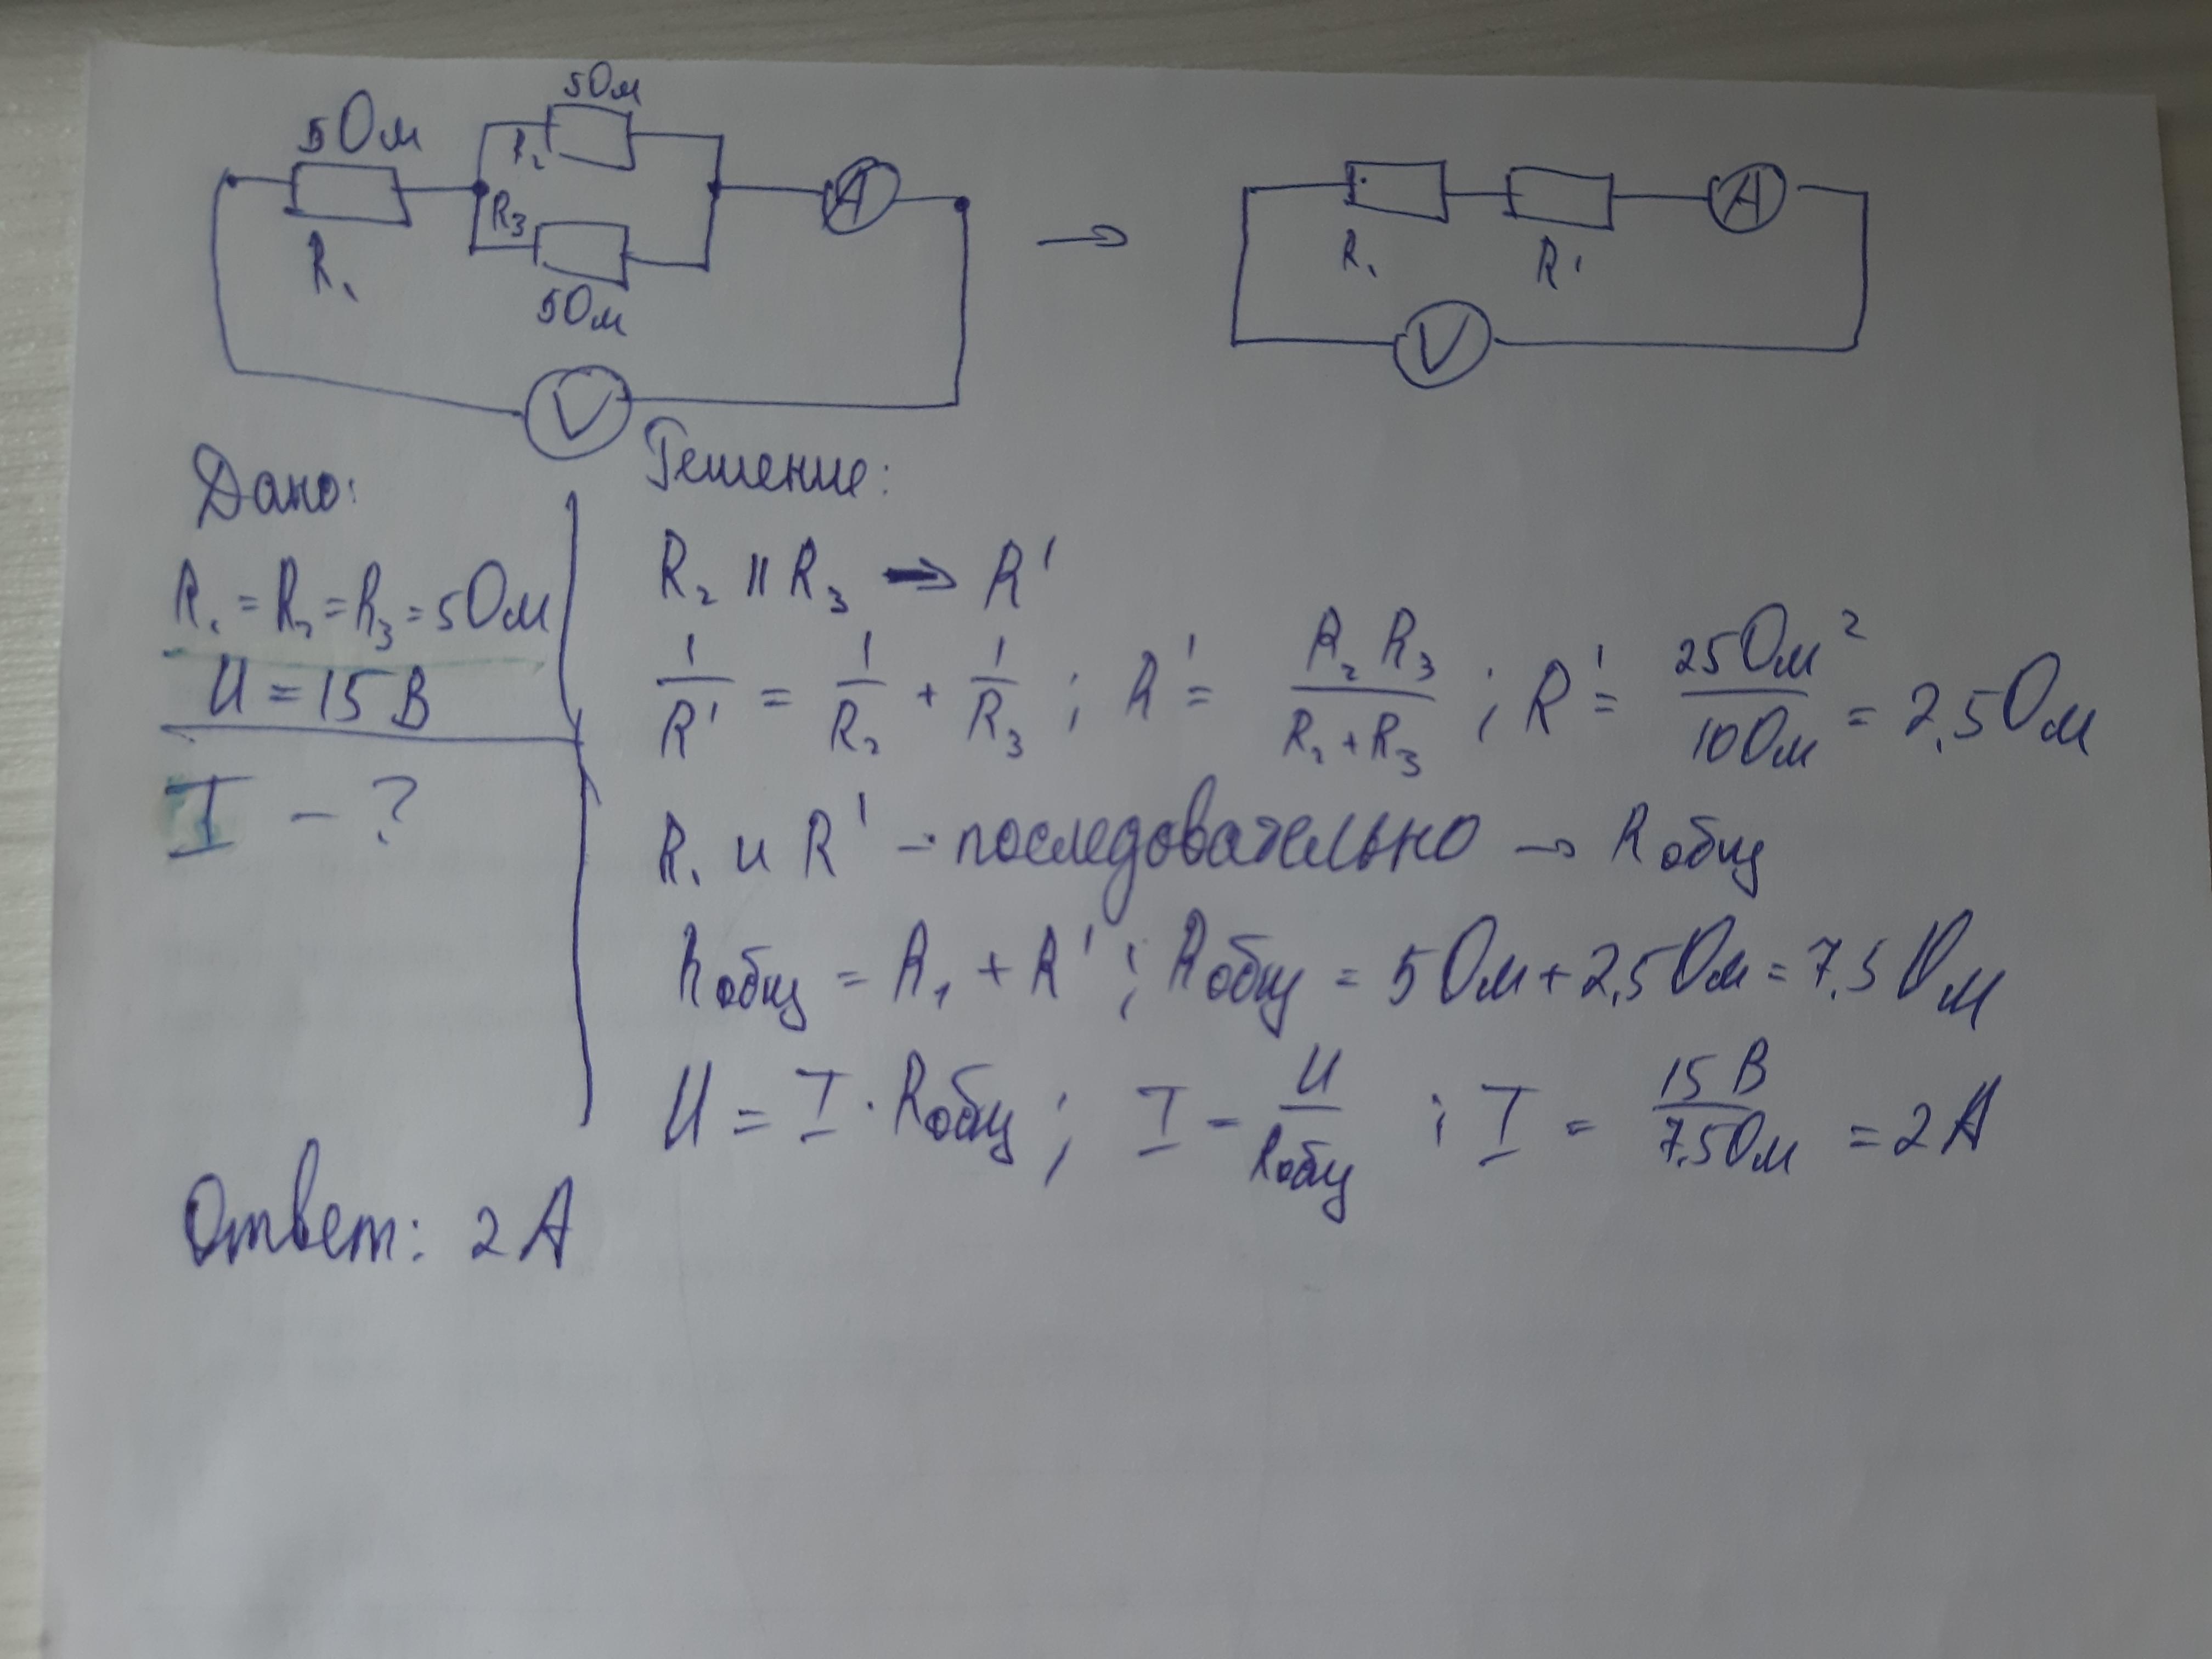 5 Ом
5 Ом
R₂
R₃
R₁
5 Ом
A
V
R₁
R'
A
V
Дано:
R₁ = R₂ = R₃ = 5 Ом
U = 15 В
I - ?
Решение:
R₂ || R₃ → R'
1/R' = 1/R₂ + 1/R₃ ; R' = R₂ R₃/R₂ + R₃ ; R' = 25 Ом²/10 Ом = 2,5 Ом
R₁ и R' - последовательно → Rобщ
Rобщ = R₁ + R' ; Rобщ = 5 Ом + 2,5 Ом = 7,5 Ом
U = I · Rобщ ; I = U/Rобщ ; I = 15 В/7,5 Ом = 2 А
Ответ: 2 А